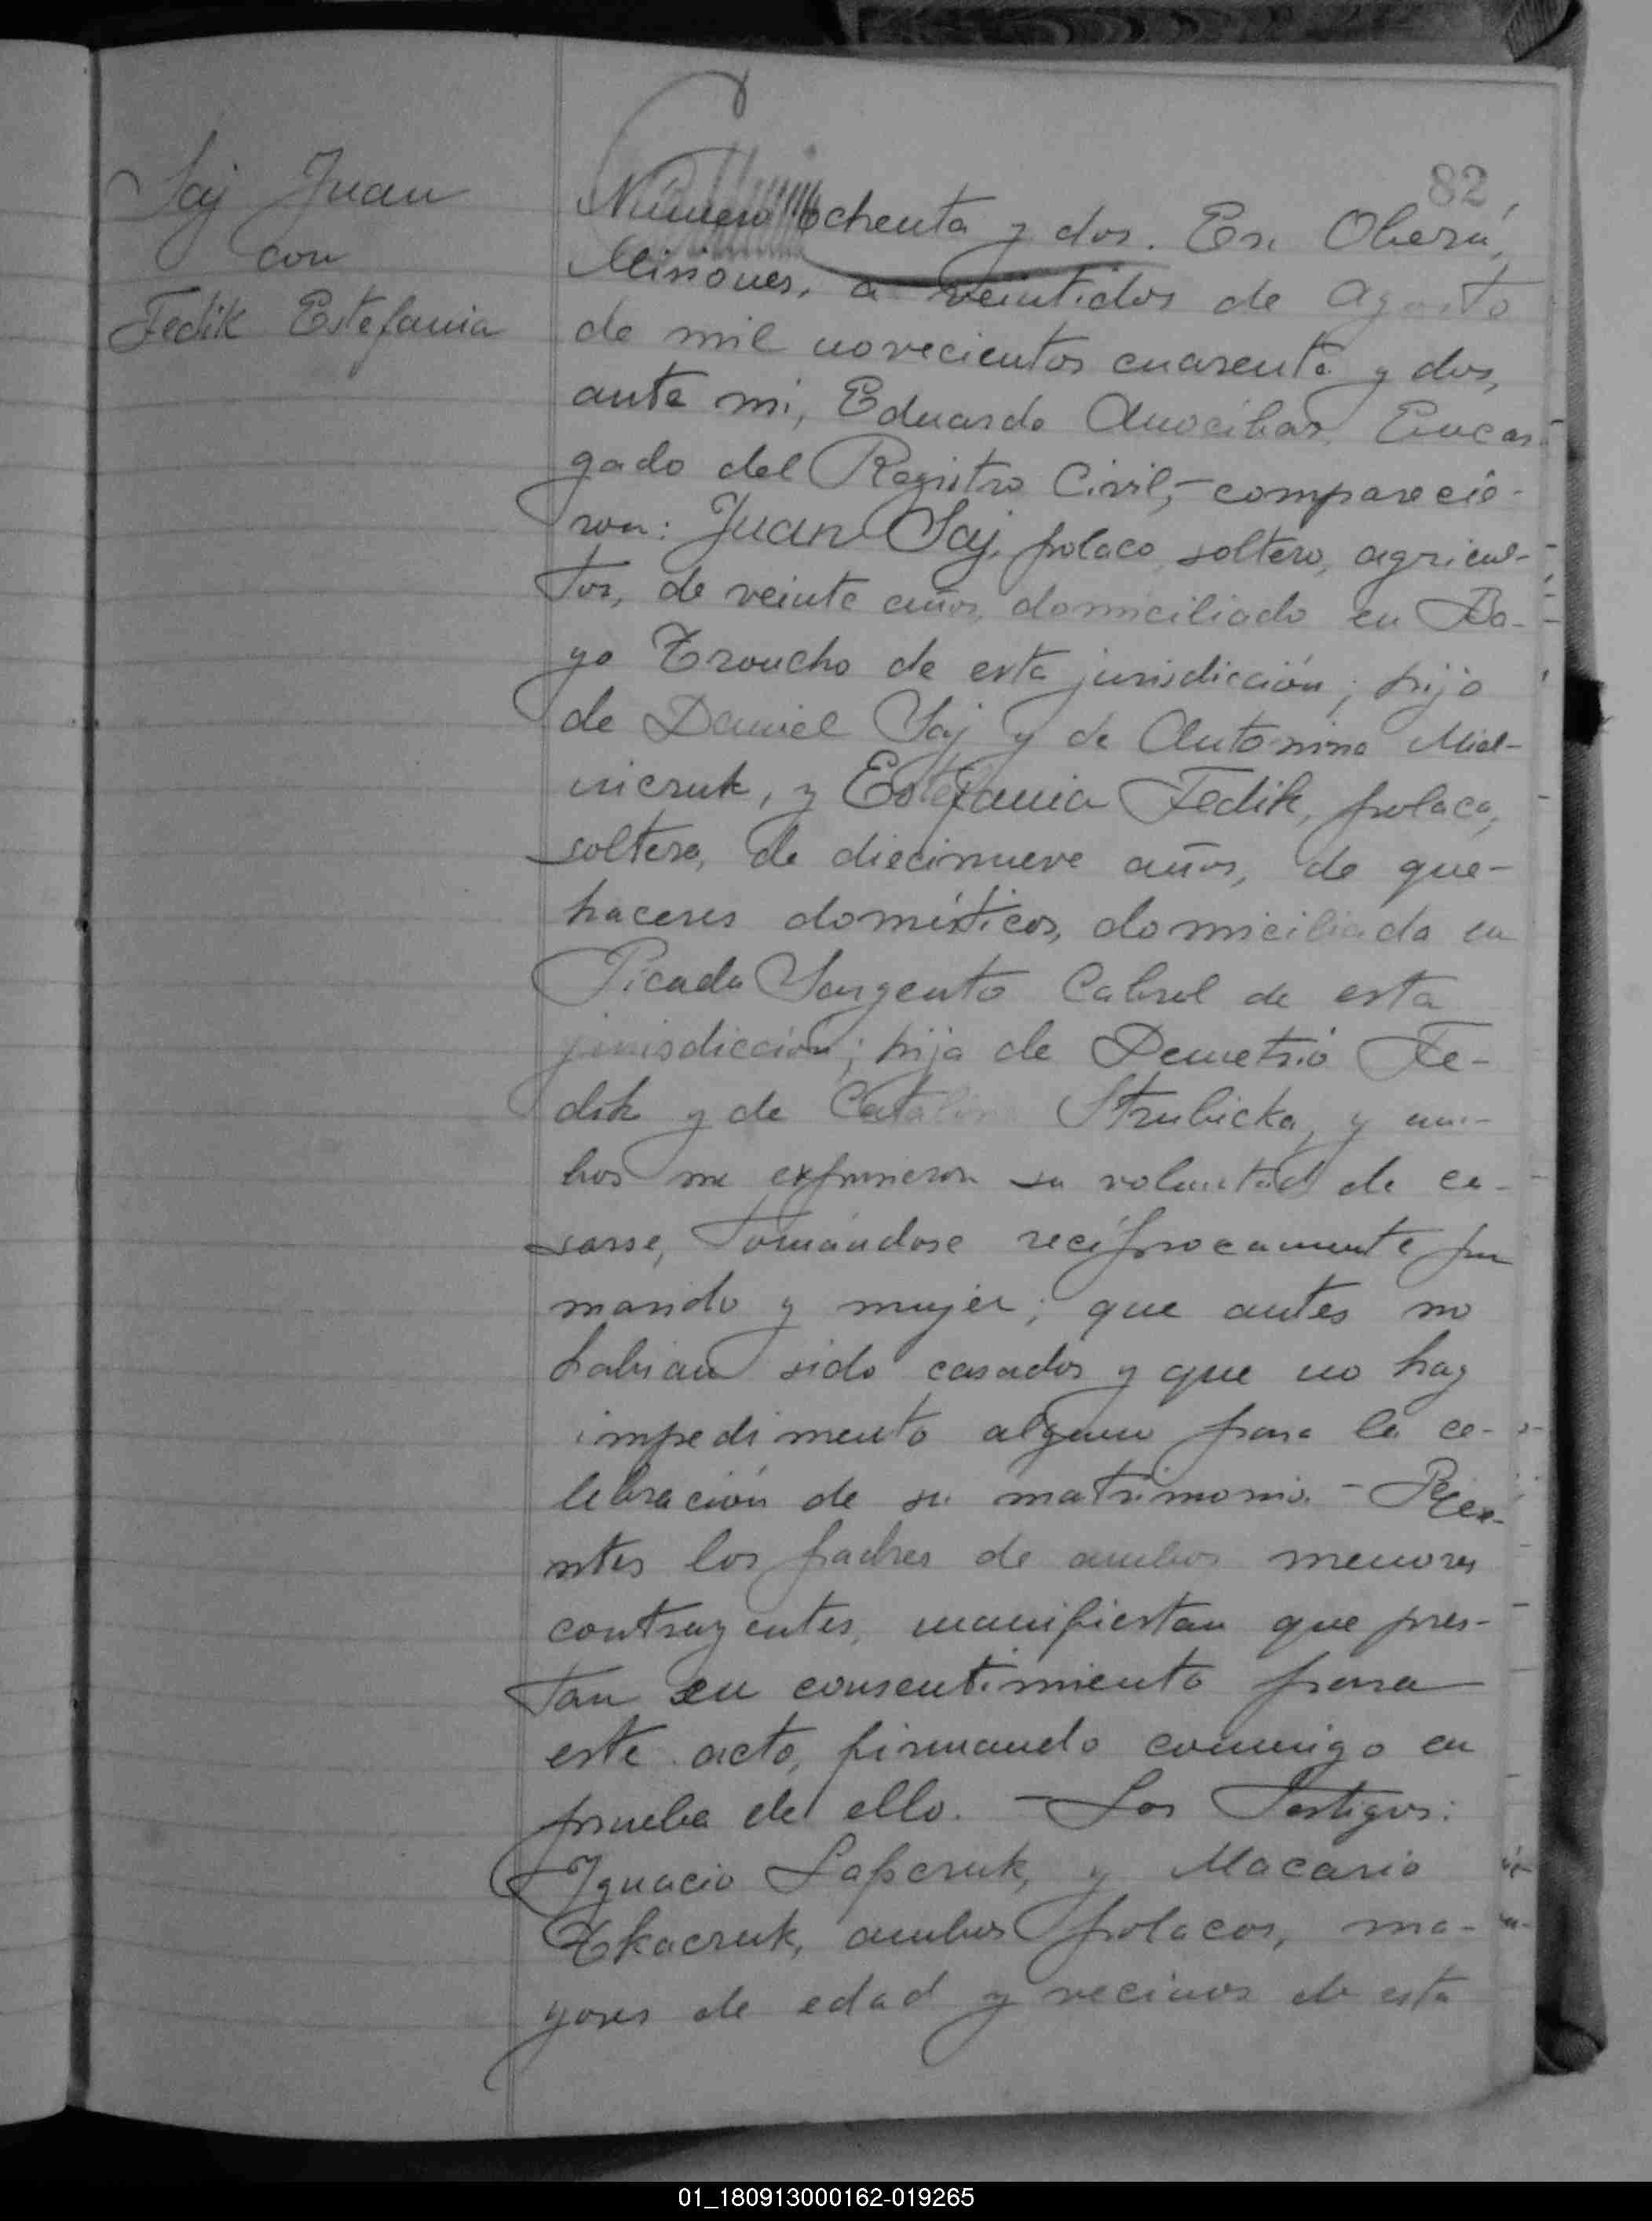 Saj Juan
con
Fedik Estefania
82
Número ochenta y dos. En Oberá,
Misiones, a veintidos de Agosto
de mil novecientos cuarenta y dos,
ante mi, Eduardo Anocibar, Encar-
gado del Registro Civil,- comparecie-
ron: Juan Saj, polaco, soltero, agricul-
tor, de veinte años, domiciliado en Ba-
yo Troncho de esta jurisdicción; hijo
de Daniel Saj y de Antonina Miel-
niczuk, y Estefania Fedik, polaca,
soltera, de diecinueve años, de que-
haceres domésticos, domiciliada en
Picada Sargento Cabral de esta
jurisdicción; hija de Demetrio Fe-
dik y de Catalina Strubicka, y am-
bos me expusieron su voluntad de ca-
sarse, tomándose recíprocamente por
marido y mujer; que antes no
habian sido casados y que no hay
impedimento alguno para la ce-
lebración de su matrimonio. -
ntes los padres de ambos menores
contrayentes, manifiestan que pres-
tan su consentimiento para
este acto, firmando conmigo en
prueba de ello. - Los Testigos:
Ignacio Lapczuk, y Macario
Tkaczuk, ambos polacos, ma-
yores de edad y vecinos de esta
01_180913000162-019265